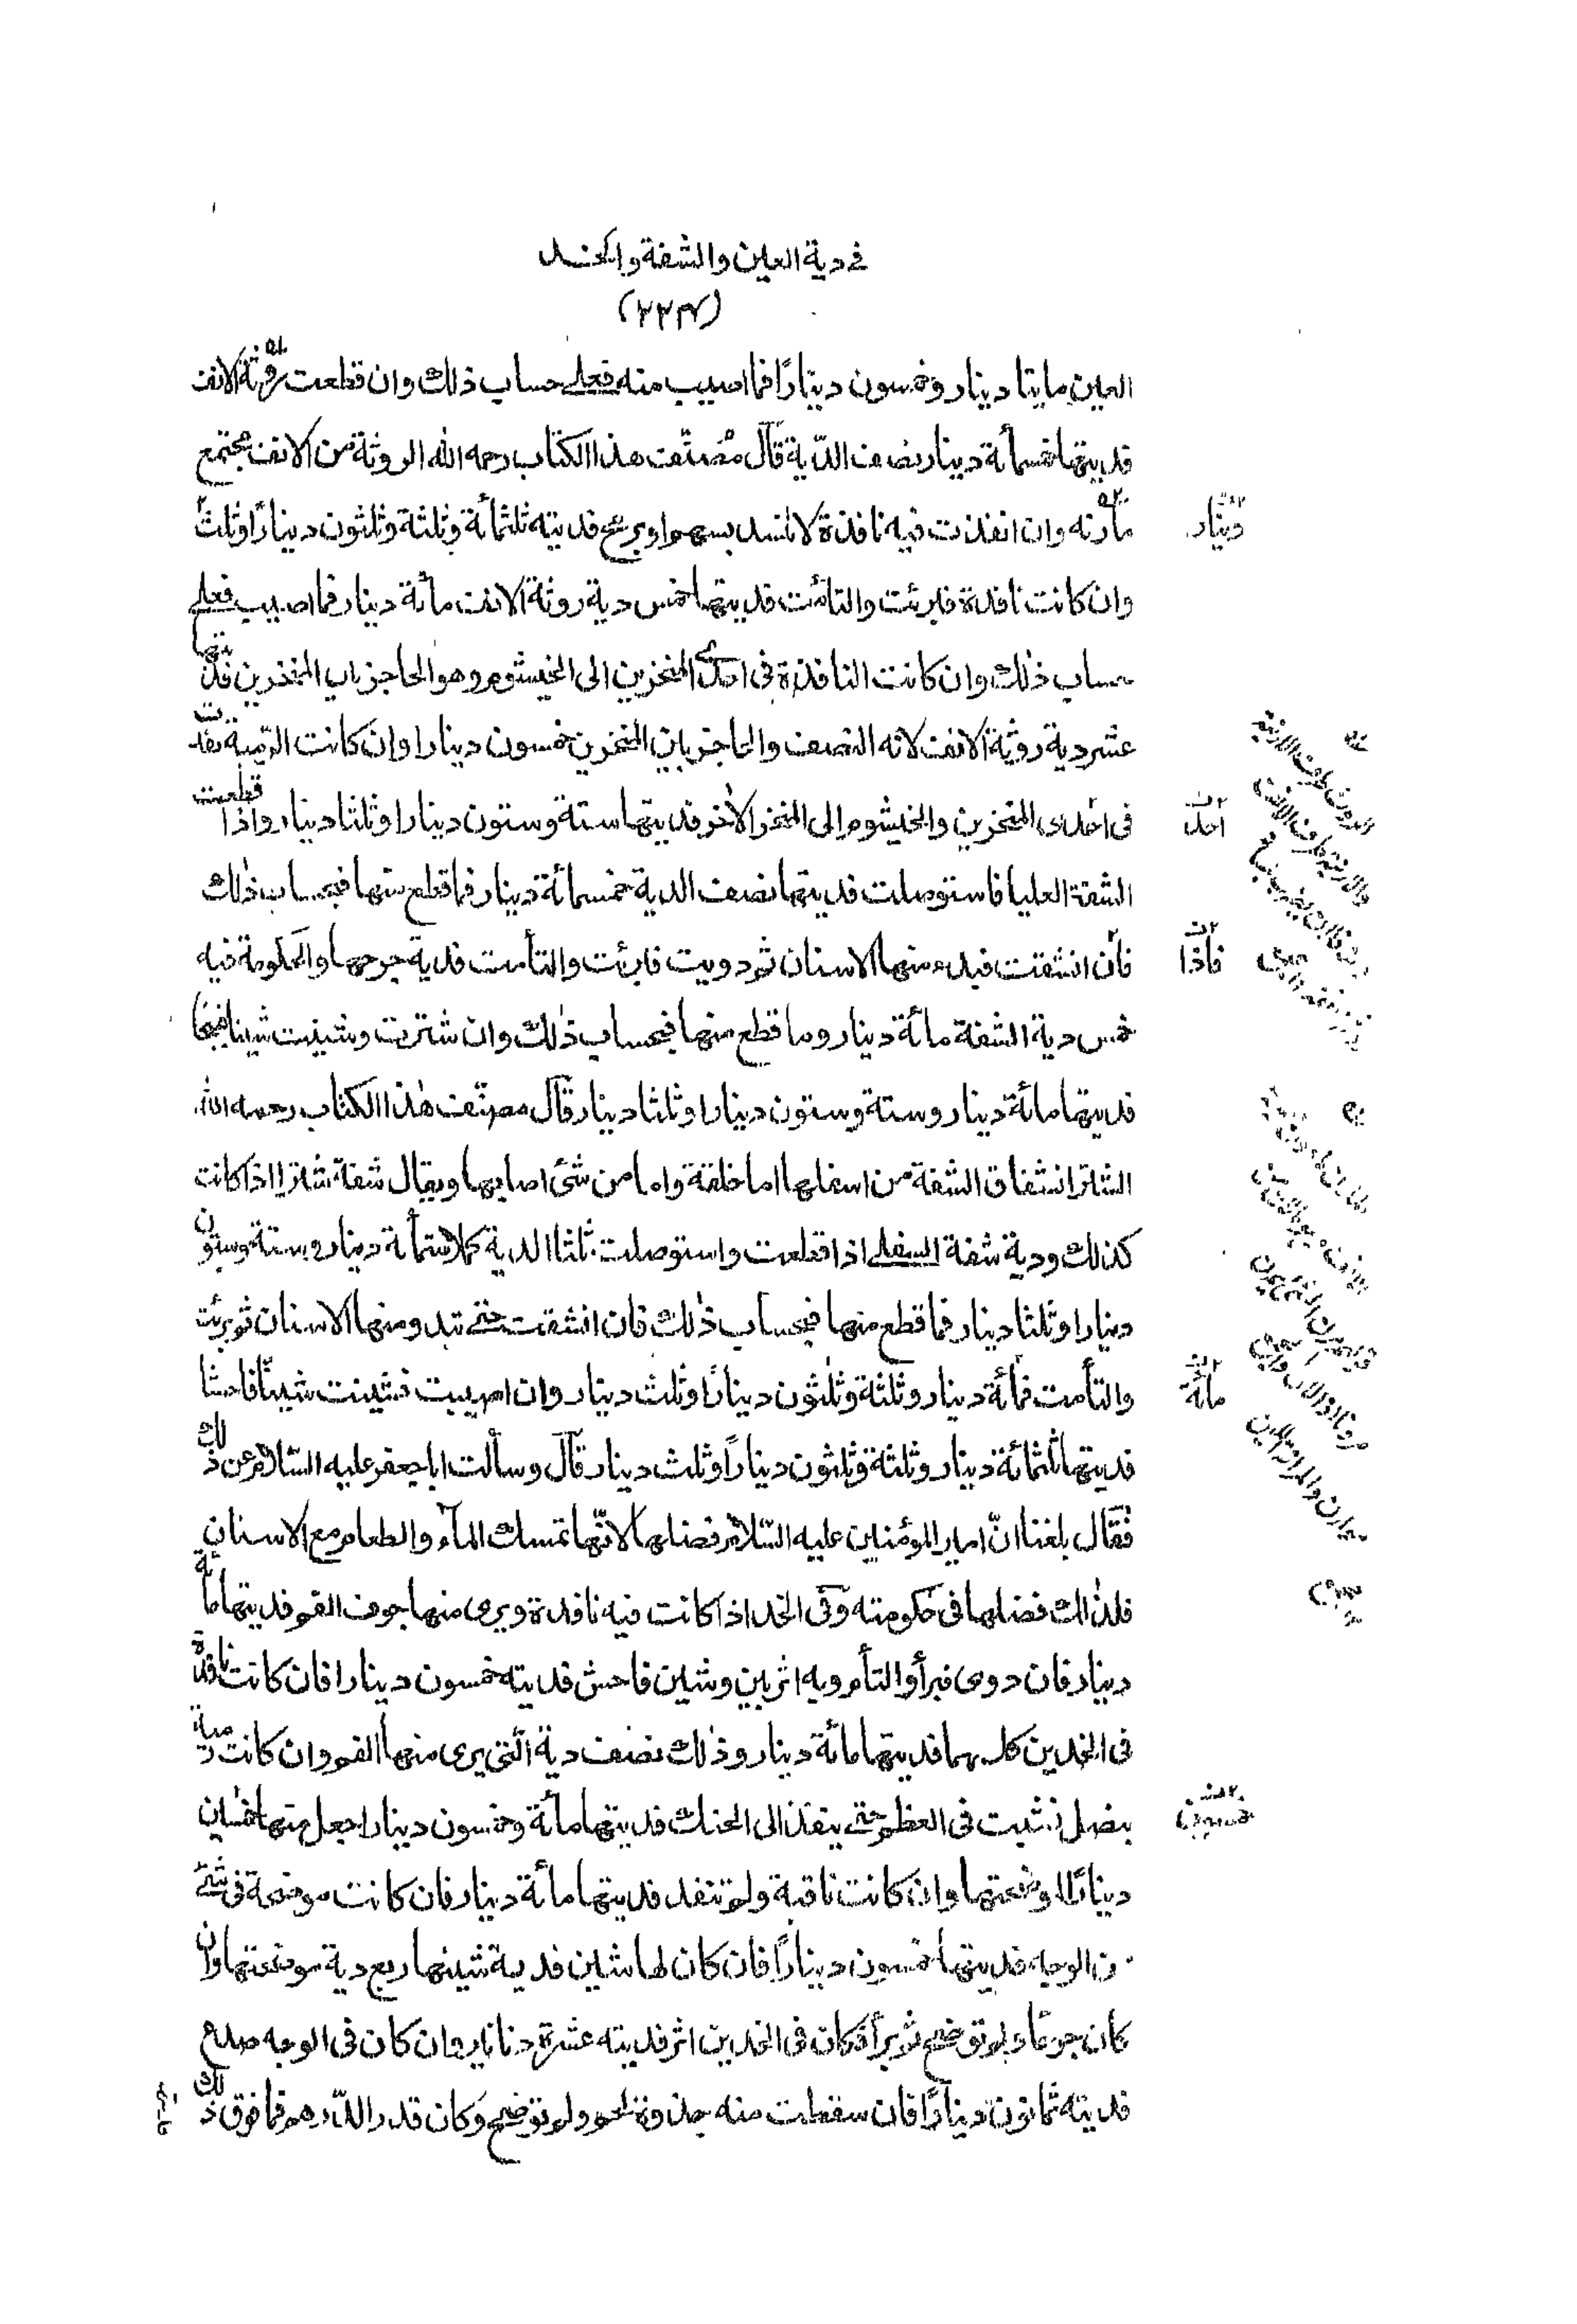 في دية العين والشفة والخد
(٢٢٣)
العين مايتا دينار وخمسون دينارًا فما اصيب منه فعلى حساب ذلك وان قطعت روثة الانف
فديتها خمسمائة دينار نصف الدّية قال مُصنّف هذا الكتاب رحمه الله الروثة من الانف مجتمع
مارنه وان انفذت فيه نافذة لا تنسد بسهم او برمح فديته ثلثمائة وثلثة وثلثون دينارًا وثلث
وان كانت نافذة فبرئت والتأمت فديتها خمس دية روثة الانف مائة دينار فما اصيب فعلى
حساب ذلك وان كانت النافذة في احدى المنخرين الى الخيشوم وهو الحاجز بين المنخرين فديتها
عشر دية روثة الانف لانه النصف والحاجز بين المنخرين خمسون دينارا وان كانت الرّمية نفذت
في احدى المنخرين والخيشوم الى المنخر الاخر فديتها ستة وستون دينارا وثلثا دينار واذا قطعت
الشفة العليا فاستوصلت فديتها نصف الدية خمسمائة دينار فما قطع منها فبحساب ذلك
فان انشقت فبدء منها الاسنان ثم دويت فابرئت والتأمت فدية جرحها والحكومة فيه
خمس دية الشفة مائة دينار وما قطع منها فبحساب ذلك وان شترت وشينت شينا قبيحا
فديتها مائة دينار وستة وستون دينارا وثلثا دينار قال مصنّف هذا الكتاب رحمه الله
الشتر انشقاق الشفة من اسفلها اما خلقة واما من شئ اصابها ويقال شفة شترا اذا كانت
كذلك ودية شفة السفلى اذا قطعت واستوصلت ثلثا الدية كملا ستمأة دينار وستة وستون
دينارا وثلثا دينار فما قطع منها فبحساب ذلك فان انشقت حتى تبدو منها الاسنان ثم برئت
والتأمت فمائة دينار وثلثة وثلثون دينارًا وثلث دينار وان اصيبت فشينت شينًا فاحشا
فديتها ثلثمائة دينار وثلثة وثلثون دينارًا وثلث دينار قال وسألت ابا جعفر عليه السّلام عن ذلك
فقال بلغنا انّ امير المؤمنين عليه السّلام فضلها لانّها تمسك المآء والطعام مع الاسنان
فلذلك فضلها في حكومته وفى الخد اذا كانت فيه نافذة ويرى منها جوف الفم فديتها مائة
دينار فان دوى فبرأ والتأم وبه اثر بين وشين فاحش فديته خمسون دينارا فان كانت نافذة
في الخدين كليهما فديتها مائة دينار وذلك نصف دية الّتي يرى منها الفم وان كانت رمية
بنصل نشبت في العظم حتى ينفذ الى الحنك فديتها مائة وخمسون دينارا جعل منها خمسين
دينارًا لموضحتها وان كانت ناقبة ولم تنفد فديتها مائة دينار فان كانت موضحة في شئ
من الوجه فديتها خمسون دينارًا فان كان لها شين فدية شينها ربع دية موضحتها وان
كان جرحًا ولم توضح ثم برأ فكان في الخدين اثر فديته عشرة دنانير وان كان في الوجه صدع
فديته ثمانون دينارًا فان سقطت منه جذوة لحم ولم توضح وكان قدر الدّرهم فما فوق ذلك
دينار
احد
فاذا
مائة
خمسون